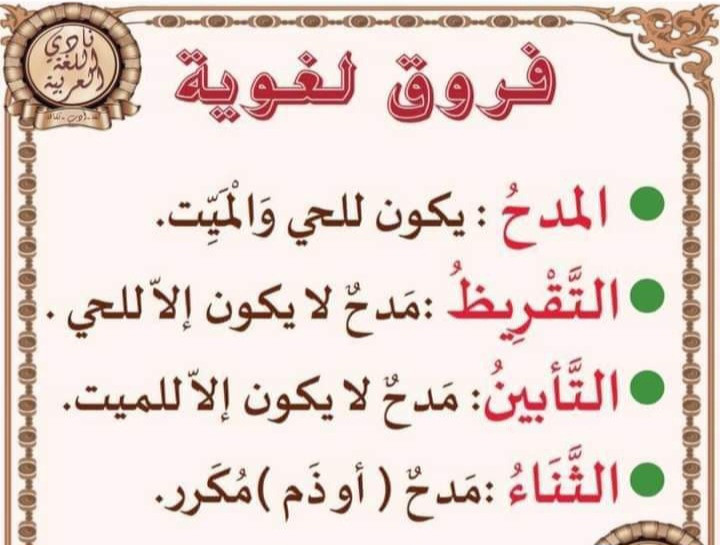 نادي
اللغة
العربية
فروق لغوية
المدحُ : يكون للحي وَالْمَيِّت.
التَّقْرِيظُ :مَدحٌ لا يكون إلاّ للحي .
التَّأبينُ: مَدحٌ لا يكون إلاّ للميت.
الثَّنَاءُ :مَدحٌ ( أو ذَم )مُكَرر.